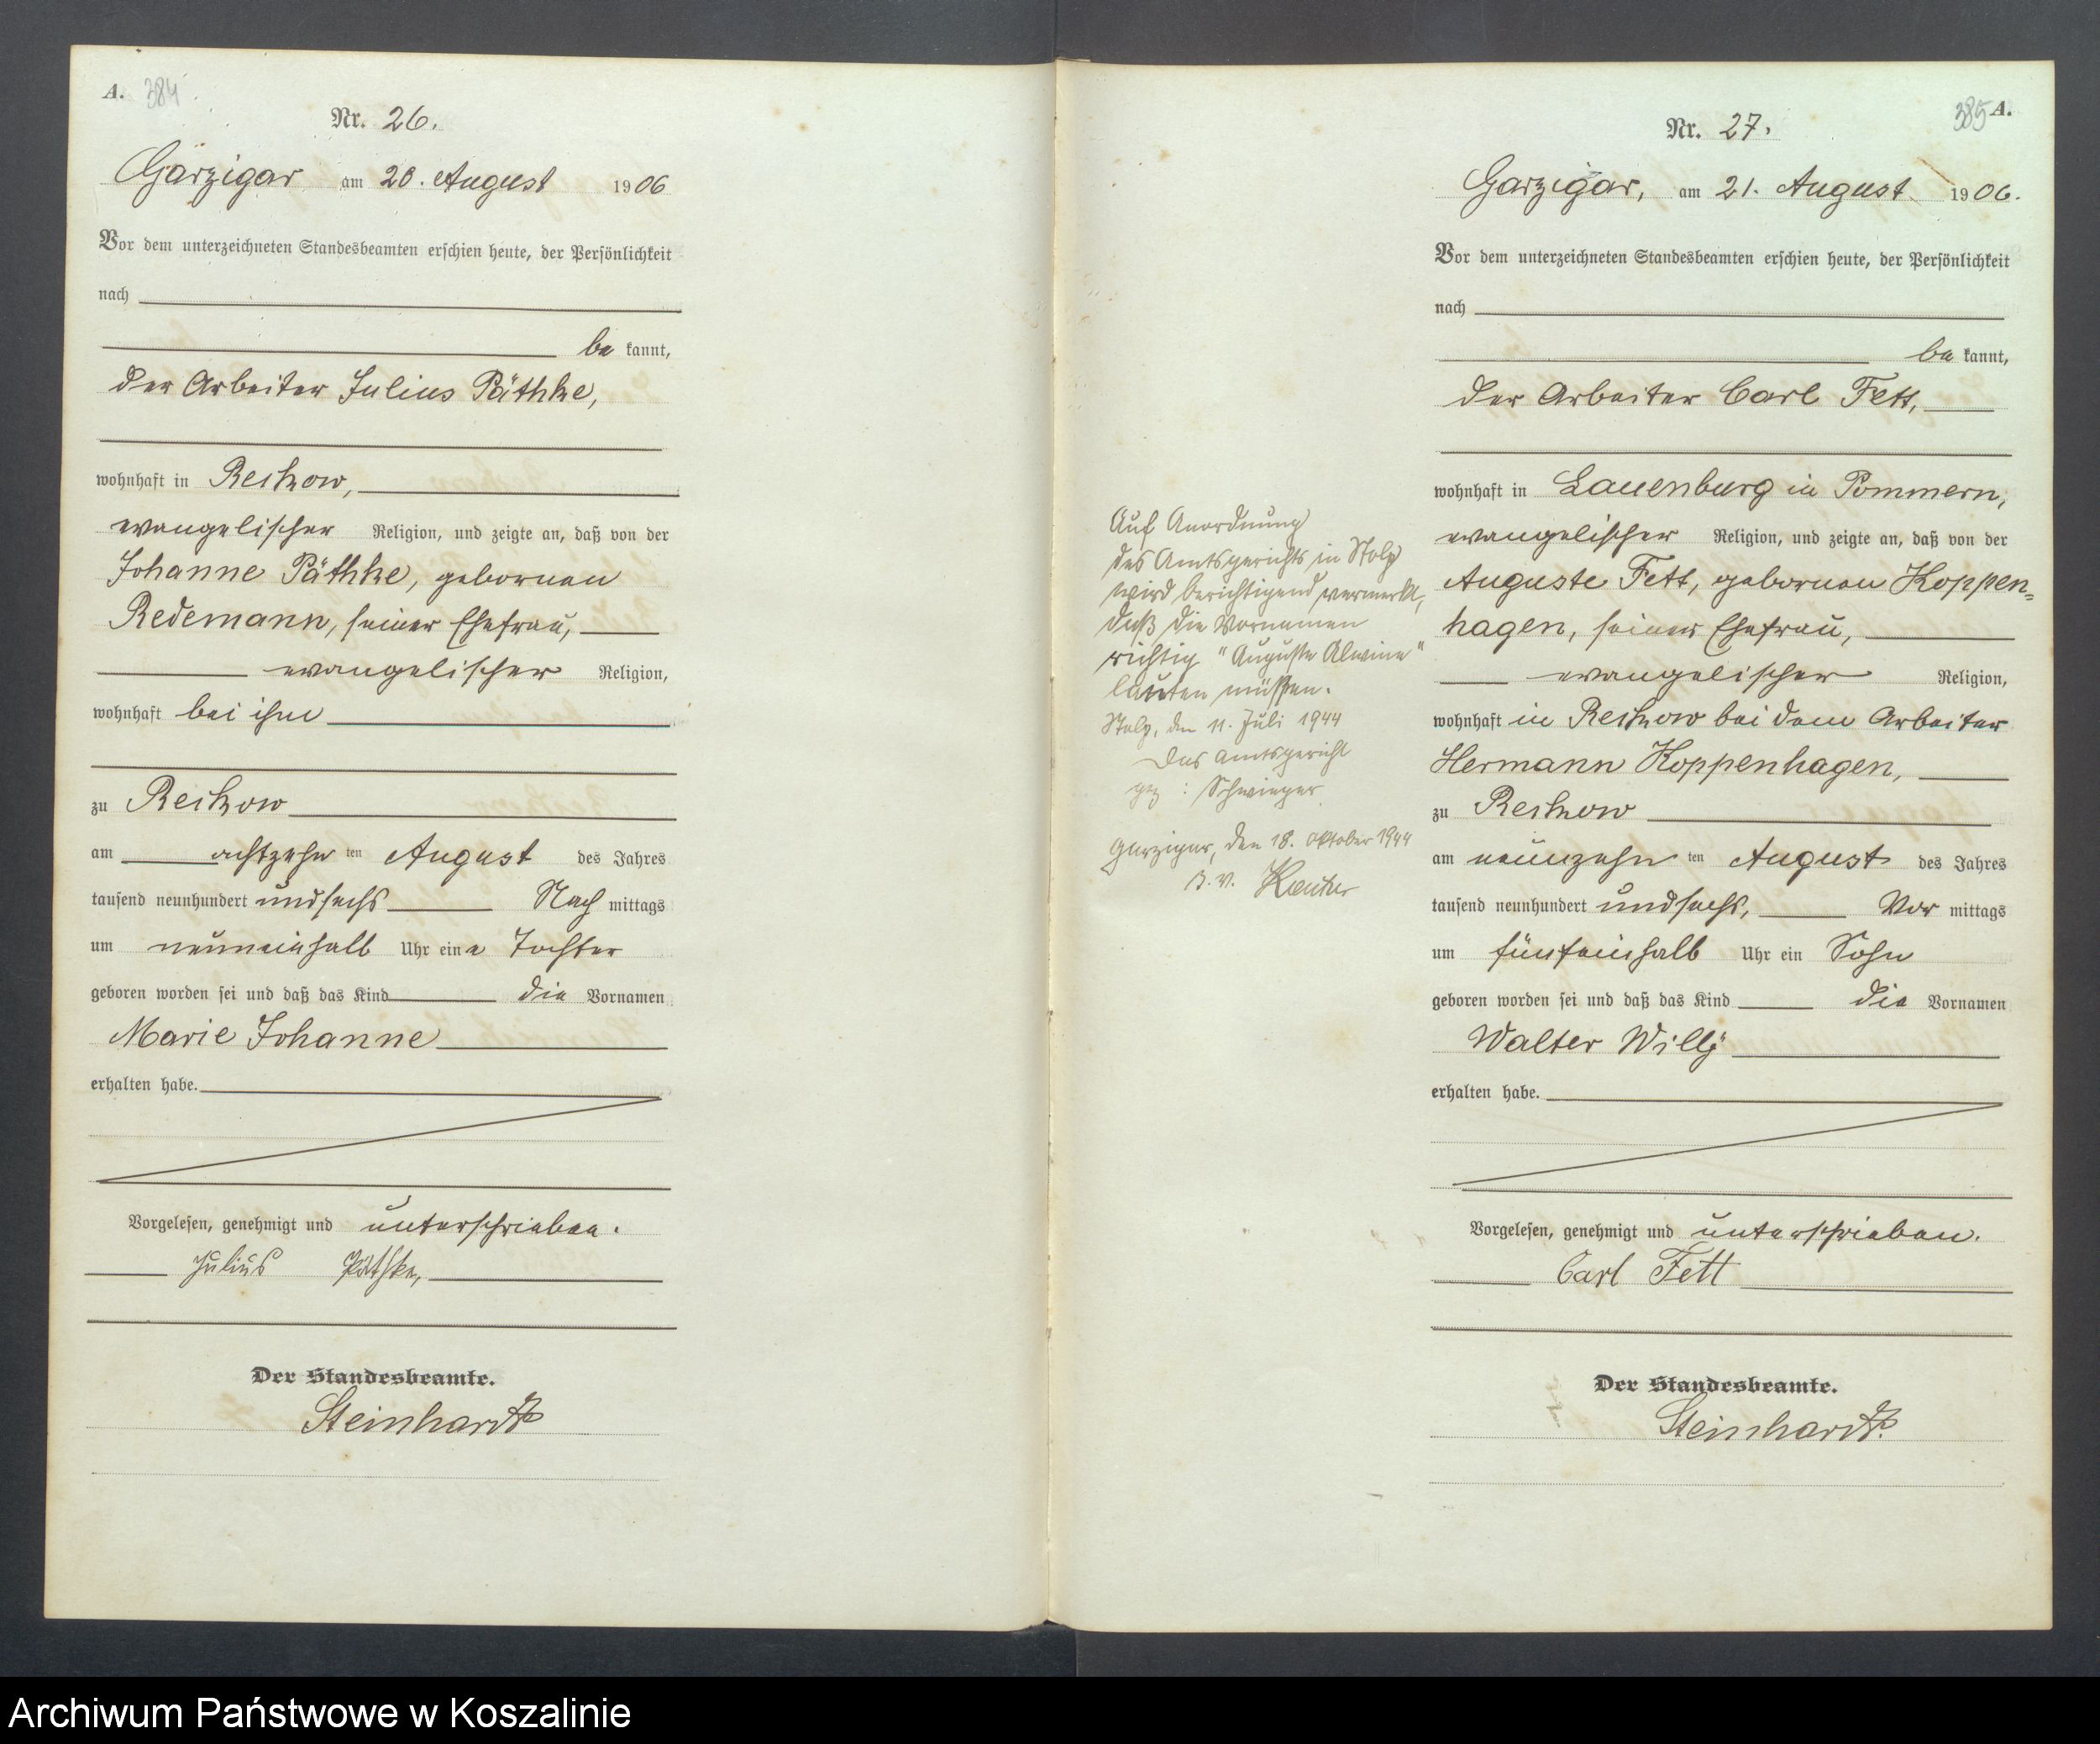 A. 384
Nr. 26.
Garzigar am 20. August 1906
Vor dem unterzeichneten Standesbeamten erschien heute, der Persönlichkeit
nach
be kannt,
der Arbeiter Julius Päthke,
wohnhaft in Reskow,
evangelischer Religion, und zeigte an, daß von der
Johanne Päthke, geborenen
Redemann, seiner Ehefrau,
evangelischer Religion,
wohnhaft bei ihm
zu Reskow
am achtzehn ten August des Jahres
tausend neunhundert und sechs Nach mittags
um neuneinhalb Uhr eine Tochter
geboren worden sei und daß das Kind die Vornamen
Marie Johanne
erhalten habe.
Vorgelesen, genehmigt und unterschrieben.
Julius Päthke,
Der Standesbeamte.
Steinhardt
Auf Anordnung
des Amtsgerichts in Stolp
wird berichtigend vermerkt,
daß die Vornamen
richtig "Auguste Alwine"
lauten müssen.
Stolp, den 11. Juli 1944
Das Amtsgericht
gez: Schwinger
Garzigar, den 18. Oktober 1944
385 A.
Nr. 27.
Garzigar, am 21. August 1906.
Vor dem unterzeichneten Standesbeamten erschien heute, der Persönlichkeit
nach
be kannt,
der Arbeiter Carl Fett,
wohnhaft in Lauenburg in Pommern,
evangelischer Religion, und zeigte an, daß von der
Auguste Fett, geborenen Koppen-
hagen, seiner Ehefrau,
evangelischer Religion,
wohnhaft in Reskow bei dem Arbeiter
Hermann Koppenhagen,
zu Reskow
am neunzehn ten August des Jahres
tausend neunhundert und sechs, Vor mittags
um fünfeinhalb Uhr ein Sohn
geboren worden sei und daß das Kind die Vornamen
Walter Willÿ
erhalten habe.
Vorgelesen, genehmigt und unterschrieben.
Carl Fett
Der Standesbeamte.
Steinhardt.
Archiwum Państwowe w Koszalinie